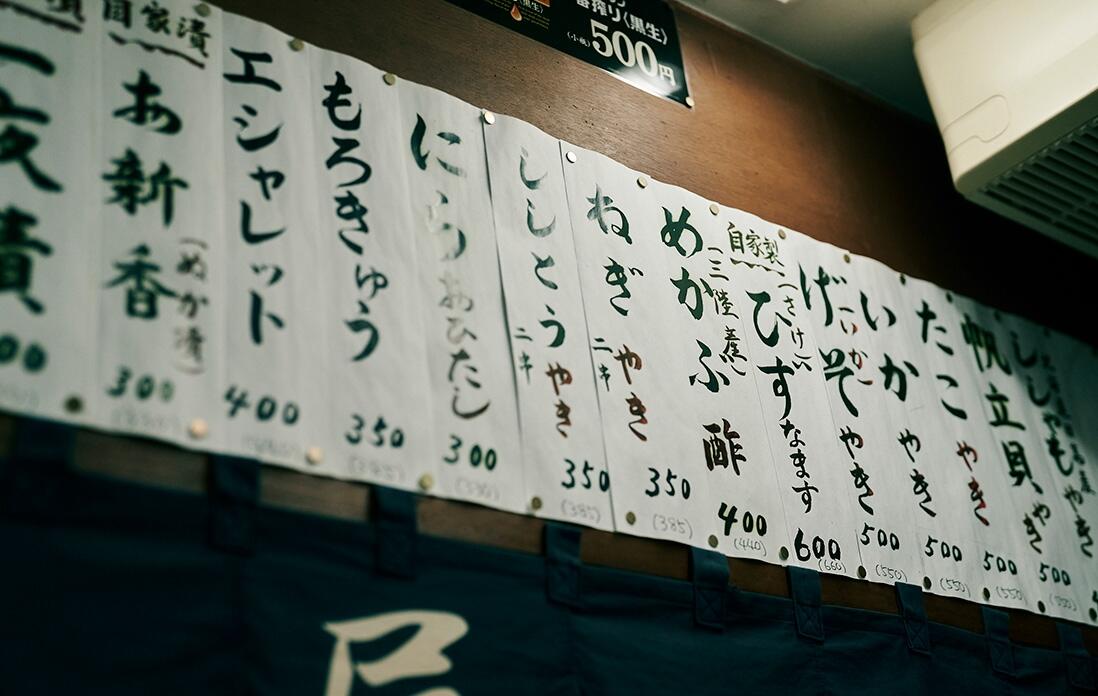 番搾り〈黒生〉
(小瓶)500円
一夜漬
00
自家漬
あ新香
(ぬか漬)
300
エシャレット
400
もろきゅう
350
にらおひたし
300
ししとうやき
二キ
350
(385)
ねぎやき
二キ
350
(385)
めかぶ酢
(三陸産)
400
(440)
自家製
ひずなます
(さけ
600
(660)
げそやき
(いか)
500
(550)
いかやき
500
(550)
たこやき
500
(550)
帆立貝やき
500
ししゃもやき